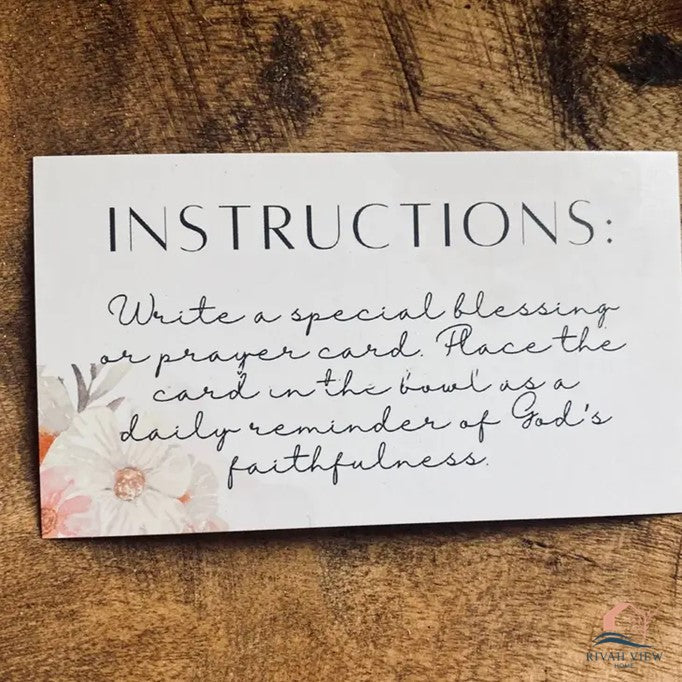 INSTRUCTIONS:
Write a special blessing
or prayer card. Place the
card in the bowl as a
daily reminder of God's
faithfulness.
RIVAH VIEW